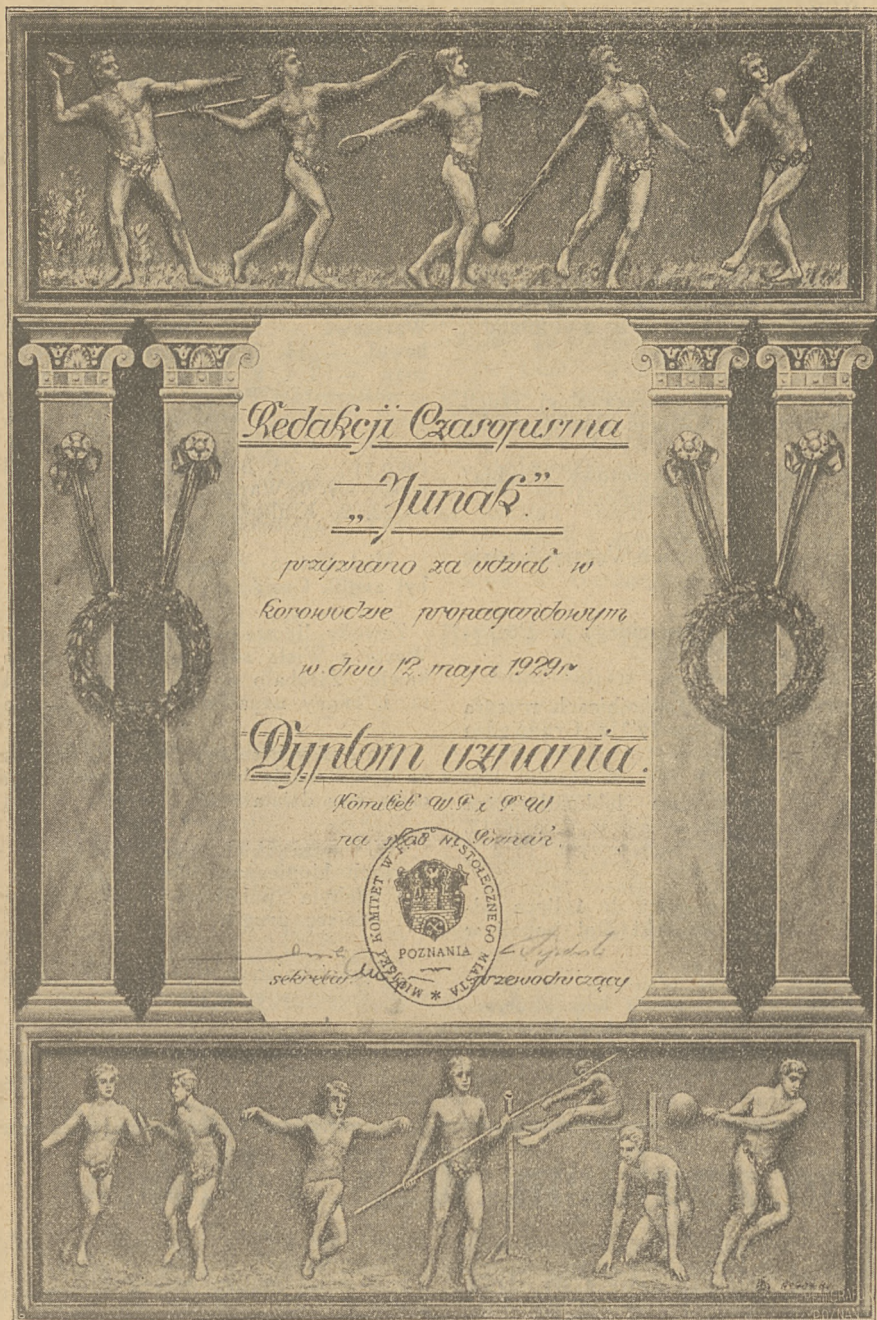 Redakcji Czasopisma
„Junak”.
przyznano za udział w
korowodzie propagandowym
w dniu 12. maja 1929 r.
Dyplom uznania.
Komitet W F i P W
na m. Poznań.
MIEJSKI KOMITET W. F. STOŁECZNEGO MIASTA
POZNANIA
sekretarz przewodniczący